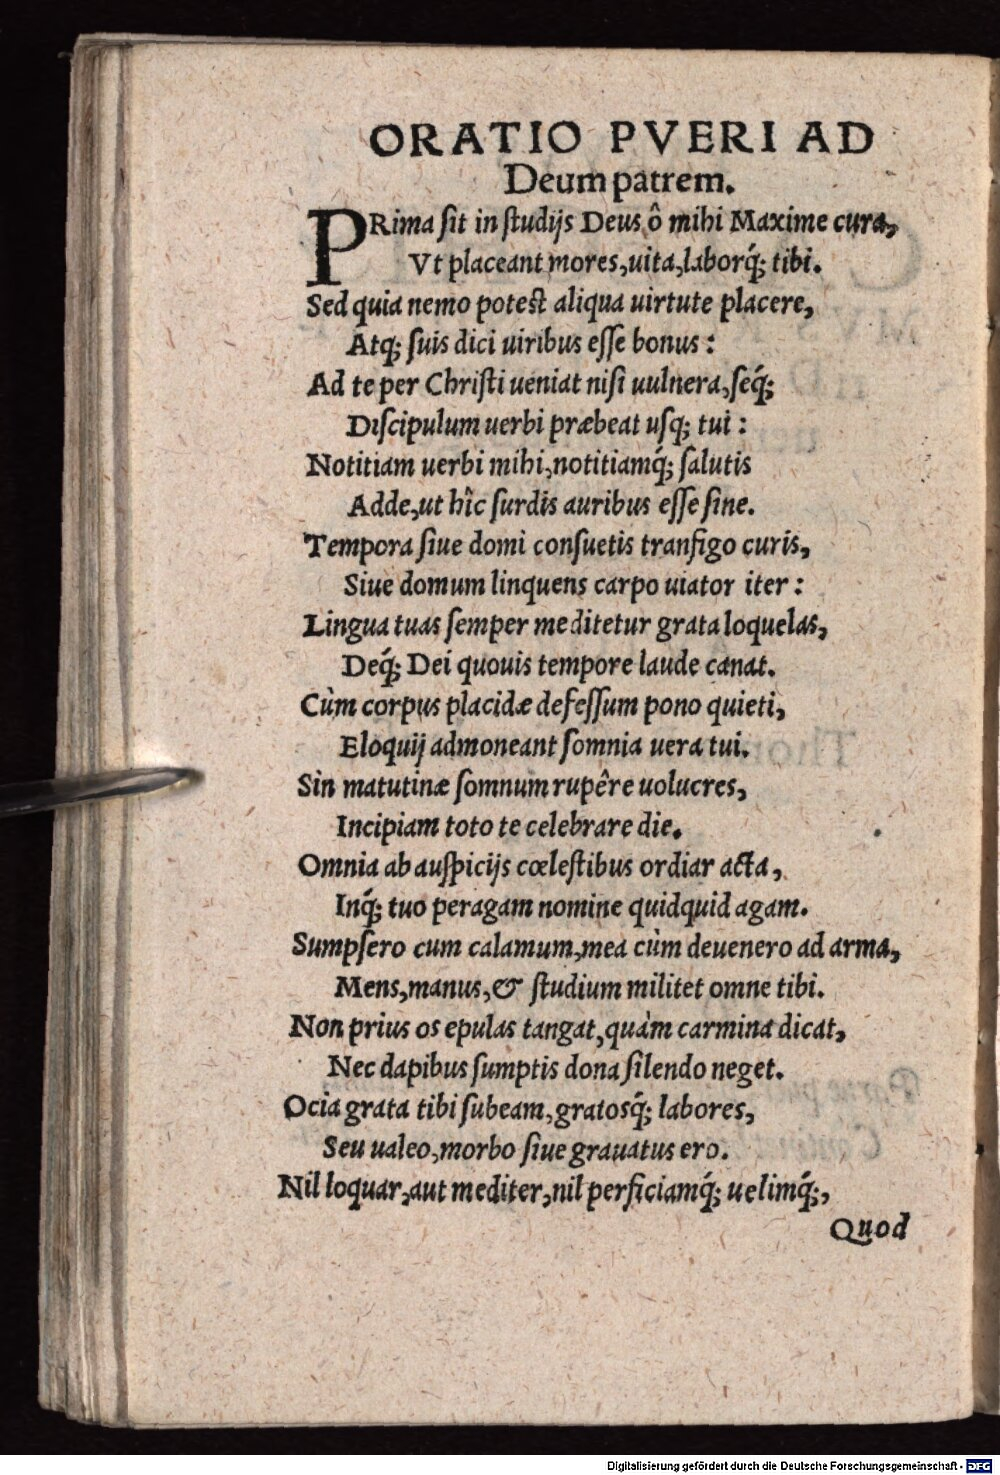 ORATIO PVERI AD
Deum patrem.
PRima sit in studijs Deus ô mihi Maxime cura,
Vt placeant mores, uita, laborq́; tibi.
Sed quia nemo potest aliqua uirtute placere,
Atq; suis dici uiribus esse bonus:
Ad te per Christi ueniat nisi uulnera, seq́;
Discipulum uerbi præbeat usq; tui:
Notitiam uerbi mihi, notitiamq́; salutis
Adde, ut hîc surdis auribus esse sine.
Tempora siue domi consuetis transigo curis,
Siue domum linquens carpo uiator iter:
Lingua tuas semper meditetur grata loquelas,
Deq́; Dei quouis tempore laude canat.
Cùm corpus placidæ defessum pono quieti,
Eloquij admoneant somnia uera tui.
Sin matutinæ somnum rupêre uolucres,
Incipiam toto te celebrare die.
Omnia ab auspicijs cœlestibus ordiar acta,
Inq́; tuo peragam nomine quidquid agam.
Sumpsero cum calamum, mea cùm deuenero ad arma,
Mens, manus, & studium militet omne tibi.
Non prius os epulas tangat, quàm carmina dicat,
Nec dapibus sumptis dona silendo neget.
Ocia grata tibi subeam, gratosq́; labores,
Seu ualeo, morbo siue grauatus ero.
Nil loquar, aut mediter, nil perficiamq́; uelimq́;,
Quod
Digitalisierung gefördert durch die Deutsche Forschungsgemeinschaft - DFG